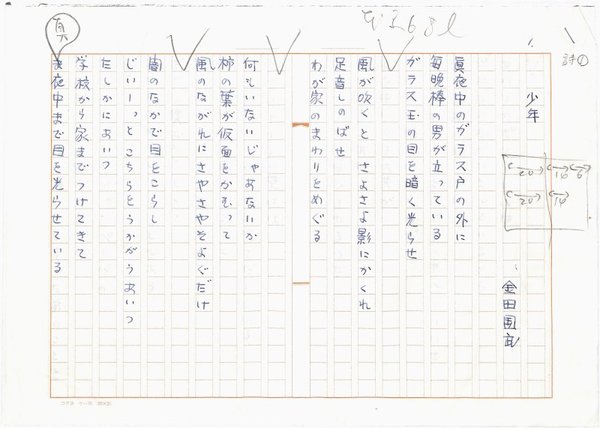 詩①
少年
金田国武
眞夜中のガラス戸の外に
毎晩棒の男が立っている
ガラス玉の目を暗く光らせ
風が吹くと さよさよ影にかくれ
足音しのばせ
わが家のまわりをめぐる
何もいないじゃあないか
柿の葉が仮面をかむって
風のながれにさやさやそよぐだけ
闇のなかで目をこらし
じいーっとこちらをうかがうあいつ
たしかにあいつ
学校から家までつけてきて
ま夜中まで目を光らせている
真
20 16 6
20 14